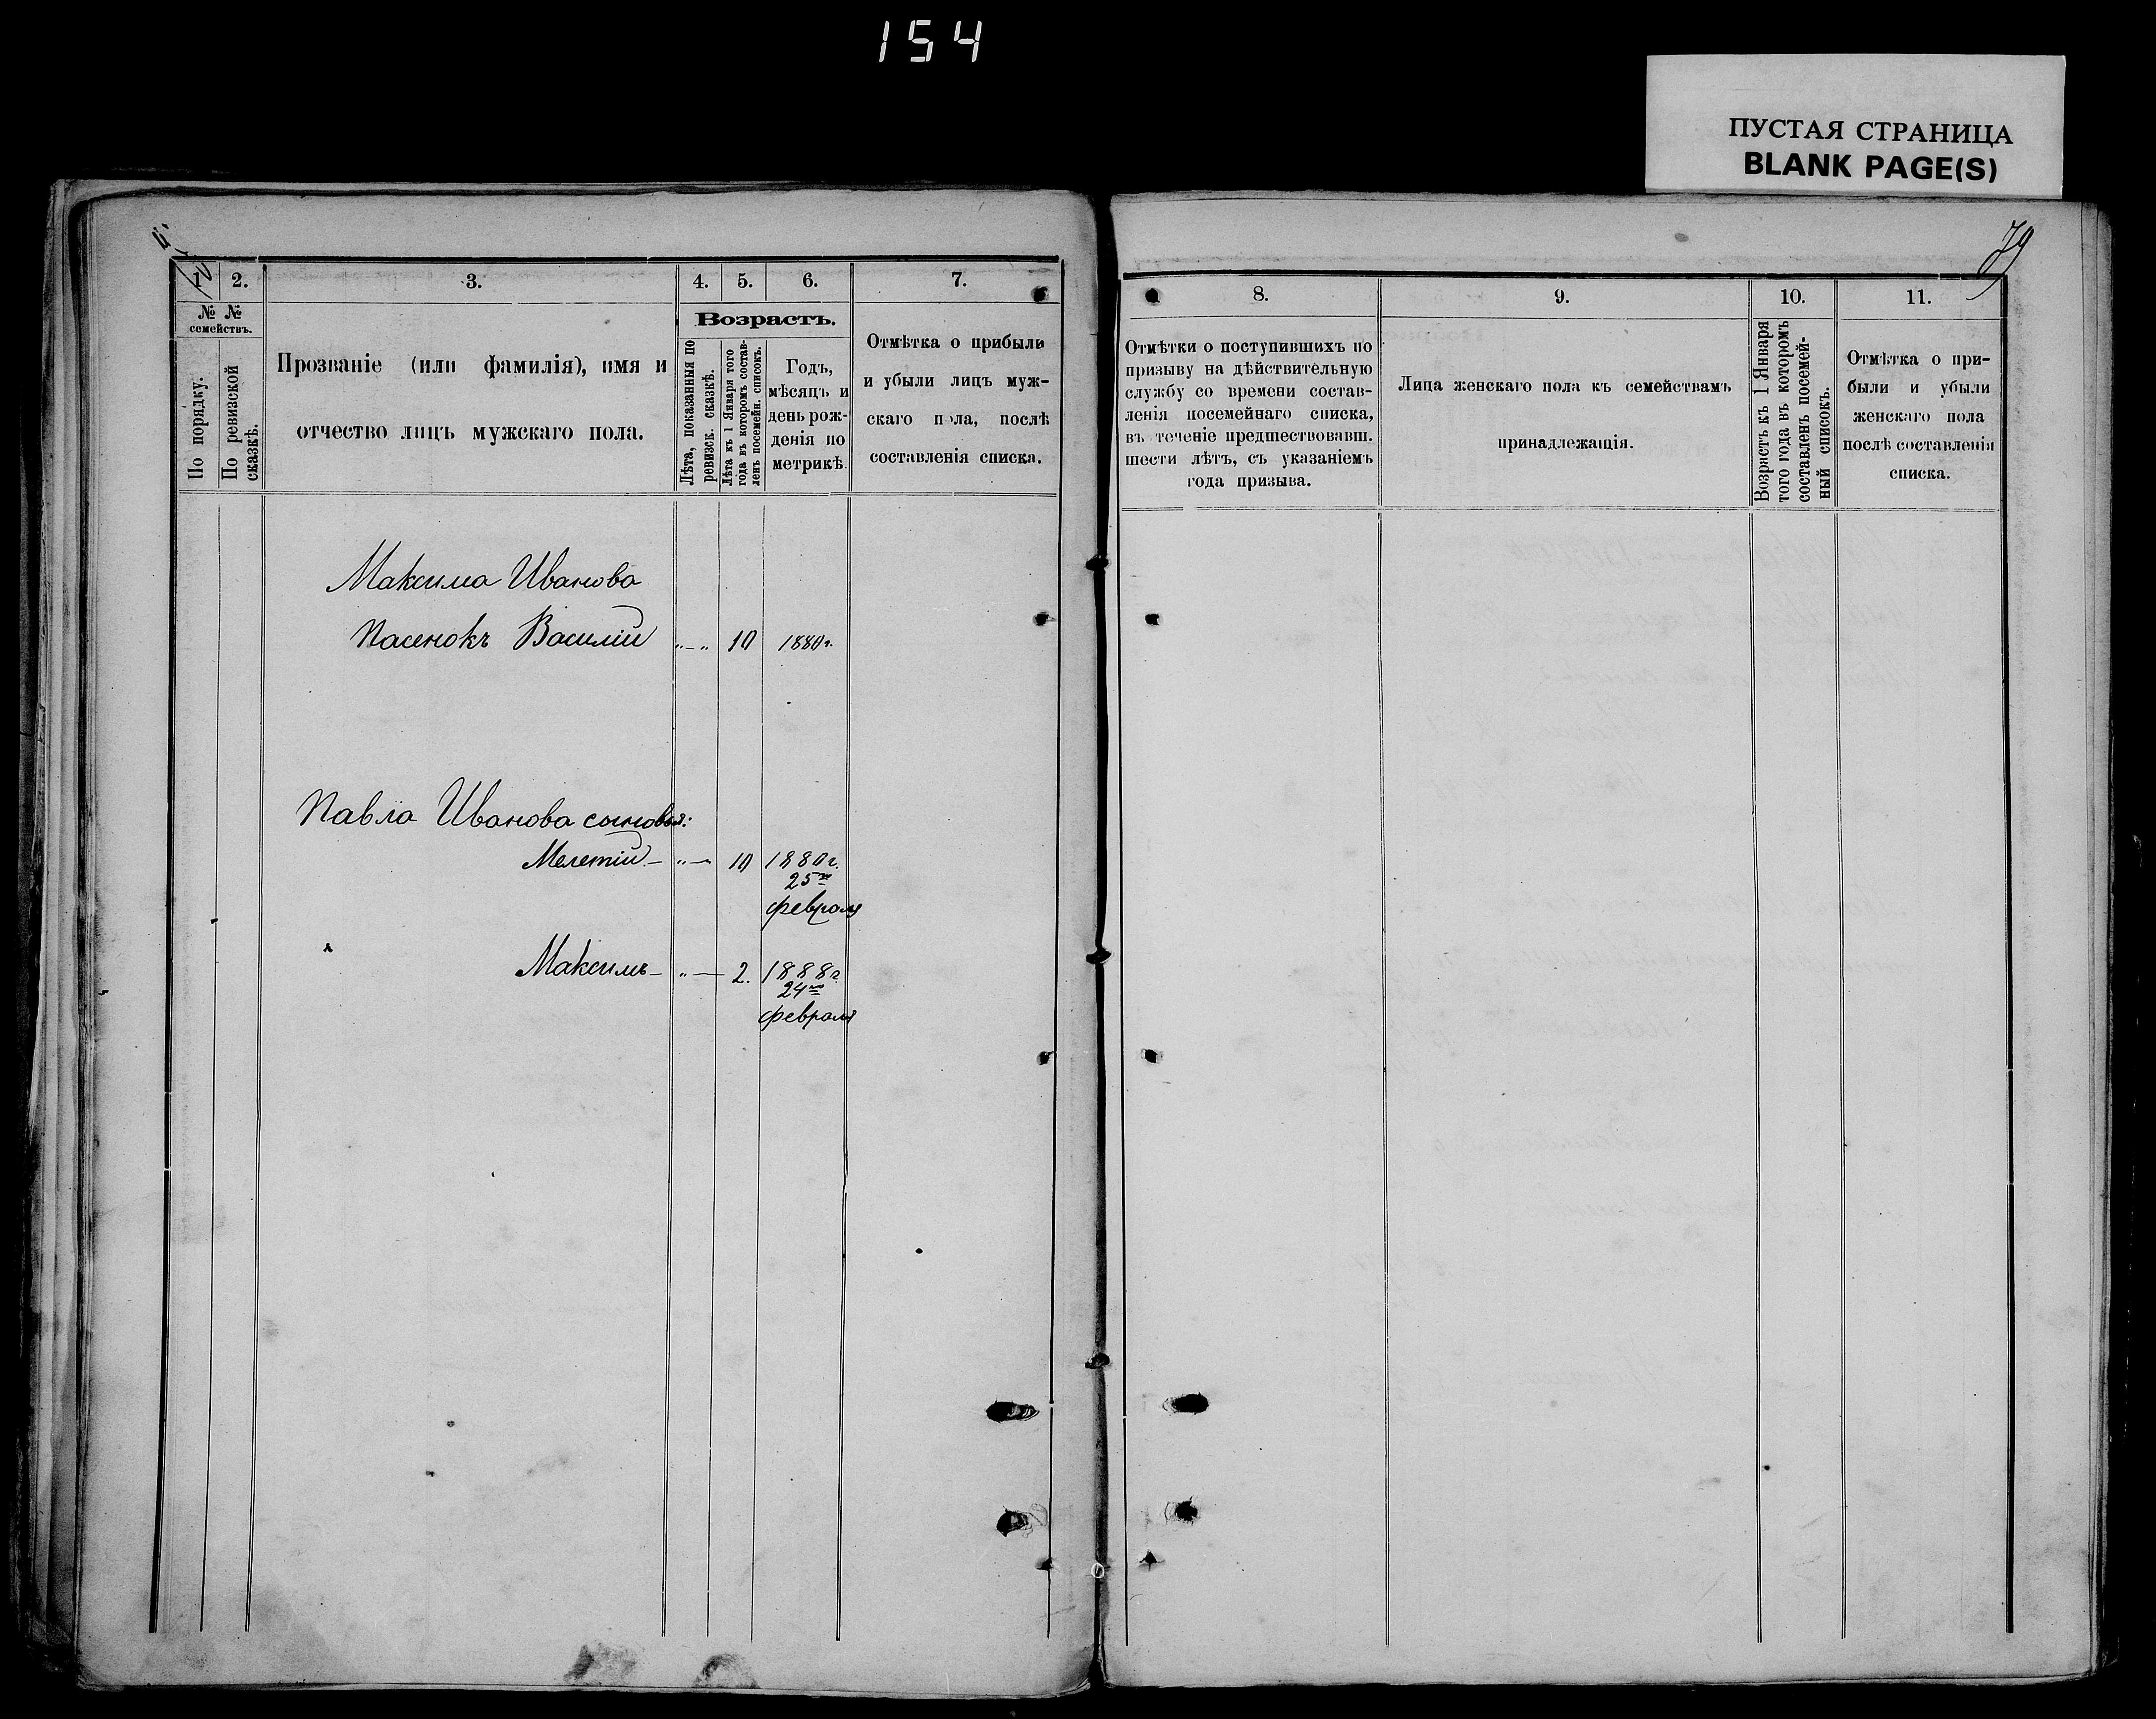 154
ПУСТАЯ СТРАНИЦА
BLANK PAGE(S)
79
1 2. 3. 4. 5. 6. 7.
№ № семействъ.
По порядку.
По ревизской сказкѣ.
Прозваніе (или фамилія), имя и
отчество лицъ мужскаго пола.
Возрастъ.
Лѣта, показанныя по ревизск. сказкѣ.
Лѣта къ 1 Января того года въ которомъ составленъ посемейн. списокъ.
Годъ,
мѣсяцъ и
день рож-
денія по
метрикѣ.
Отмѣтка о прибыли
и убыли лицъ муж-
скаго пола, послѣ
составленія списка.
8. 9. 10. 11.
Отмѣтки о поступившихъ по
призыву на дѣйствительную
службу со времени состав-
ленія посемейнаго списка,
въ теченіе предшествовавш.
шести лѣтъ, съ указаніемъ
года призыва.
Лица женскаго пола къ семействамъ
принадлежащія.
Возрастъ къ 1 Января
того года въ которомъ
составленъ посемей-
ный списокъ.
Отмѣтка о при-
были и убыли
женскаго пола
послѣ составленія
списка.
Максима Иванова
Пасенокъ Василій „—„ 10 1880 г.
Павла Иванова сыновья:
Мелетій — „— 10 1880 г.
25го
февраля
Максимъ — „— 2. 1888 г.
24го
февраля